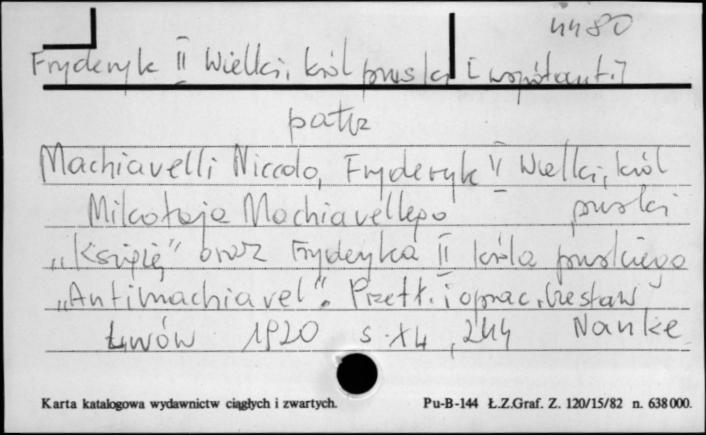 4480
Fryderyk II Wielki, król pruski [współaut.]
patrz
Machiavelli Niccolo, Fryderyk II Wielki, król
Mikołaja Machiavellego pruski
„Książę” oraz Fryderyka II króla pruskiego
„Antimachiavel”. Przetł. i oprac. Czesław
Lwów 1920 s. 244 Nanke
Karta katalogowa wydawnictw ciągłych i zwartych. Pu-B-144 Ł.Z.Graf. Z. 120/15/82 n. 638000.